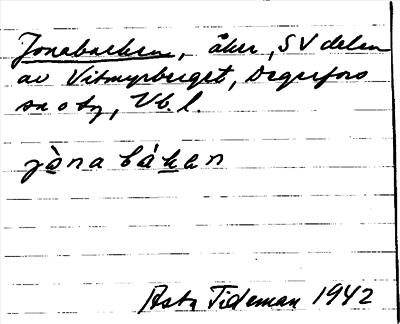 Jonabacken, åker, SV delen
av Vitmyrberget, Degerfors
sn o by, Vb. l.
jònabákan
Asta Tideman 1942